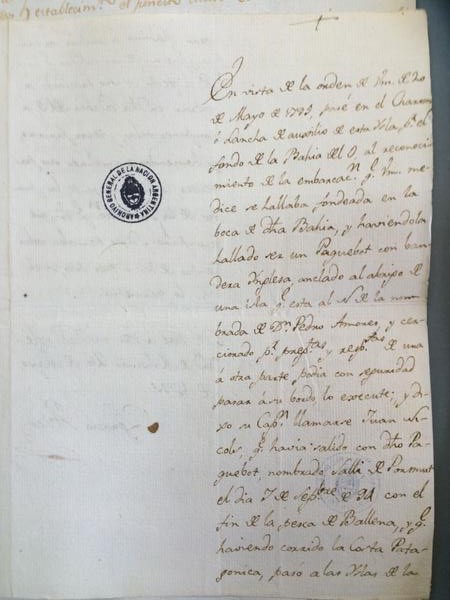 y establecim.to el
En vista de la orden de Vm. de 20
de Mayo de 1795, pasé en el
ó Lancha de auxilio de esta Ysla, p.a el
fondo de la Bahia del O, al reconoci
miento de la embarcac.n q.e Vm. me
dice se hallaba fondeada en la
boca de dha Bahia, y haviendola
hallado ser un Paquebot con ban
dera Ynglesa, anclado al abrigo de
una isla q.e esta al N de la nom
brada de D.n Pedro Amores, y cer
cionado p.r preg.tas y resp.tas de una
á otra parte, podia con seguridad
pasar á su bordo, lo execute; y di
xo su Cap.n llamarse Juan Ni
cols, q.e havia salido con dho Pa
quebot, nombrado Salli de Porsmut
el dia 7 de Sep.bre de 94 con el
fin de la pesca de Ballena, y q.e
haviendo corrido la Costa Pata
gonica, pasó a las Yslas de la
ARCHIVO GENERAL DE LA NACION ARGENTINA